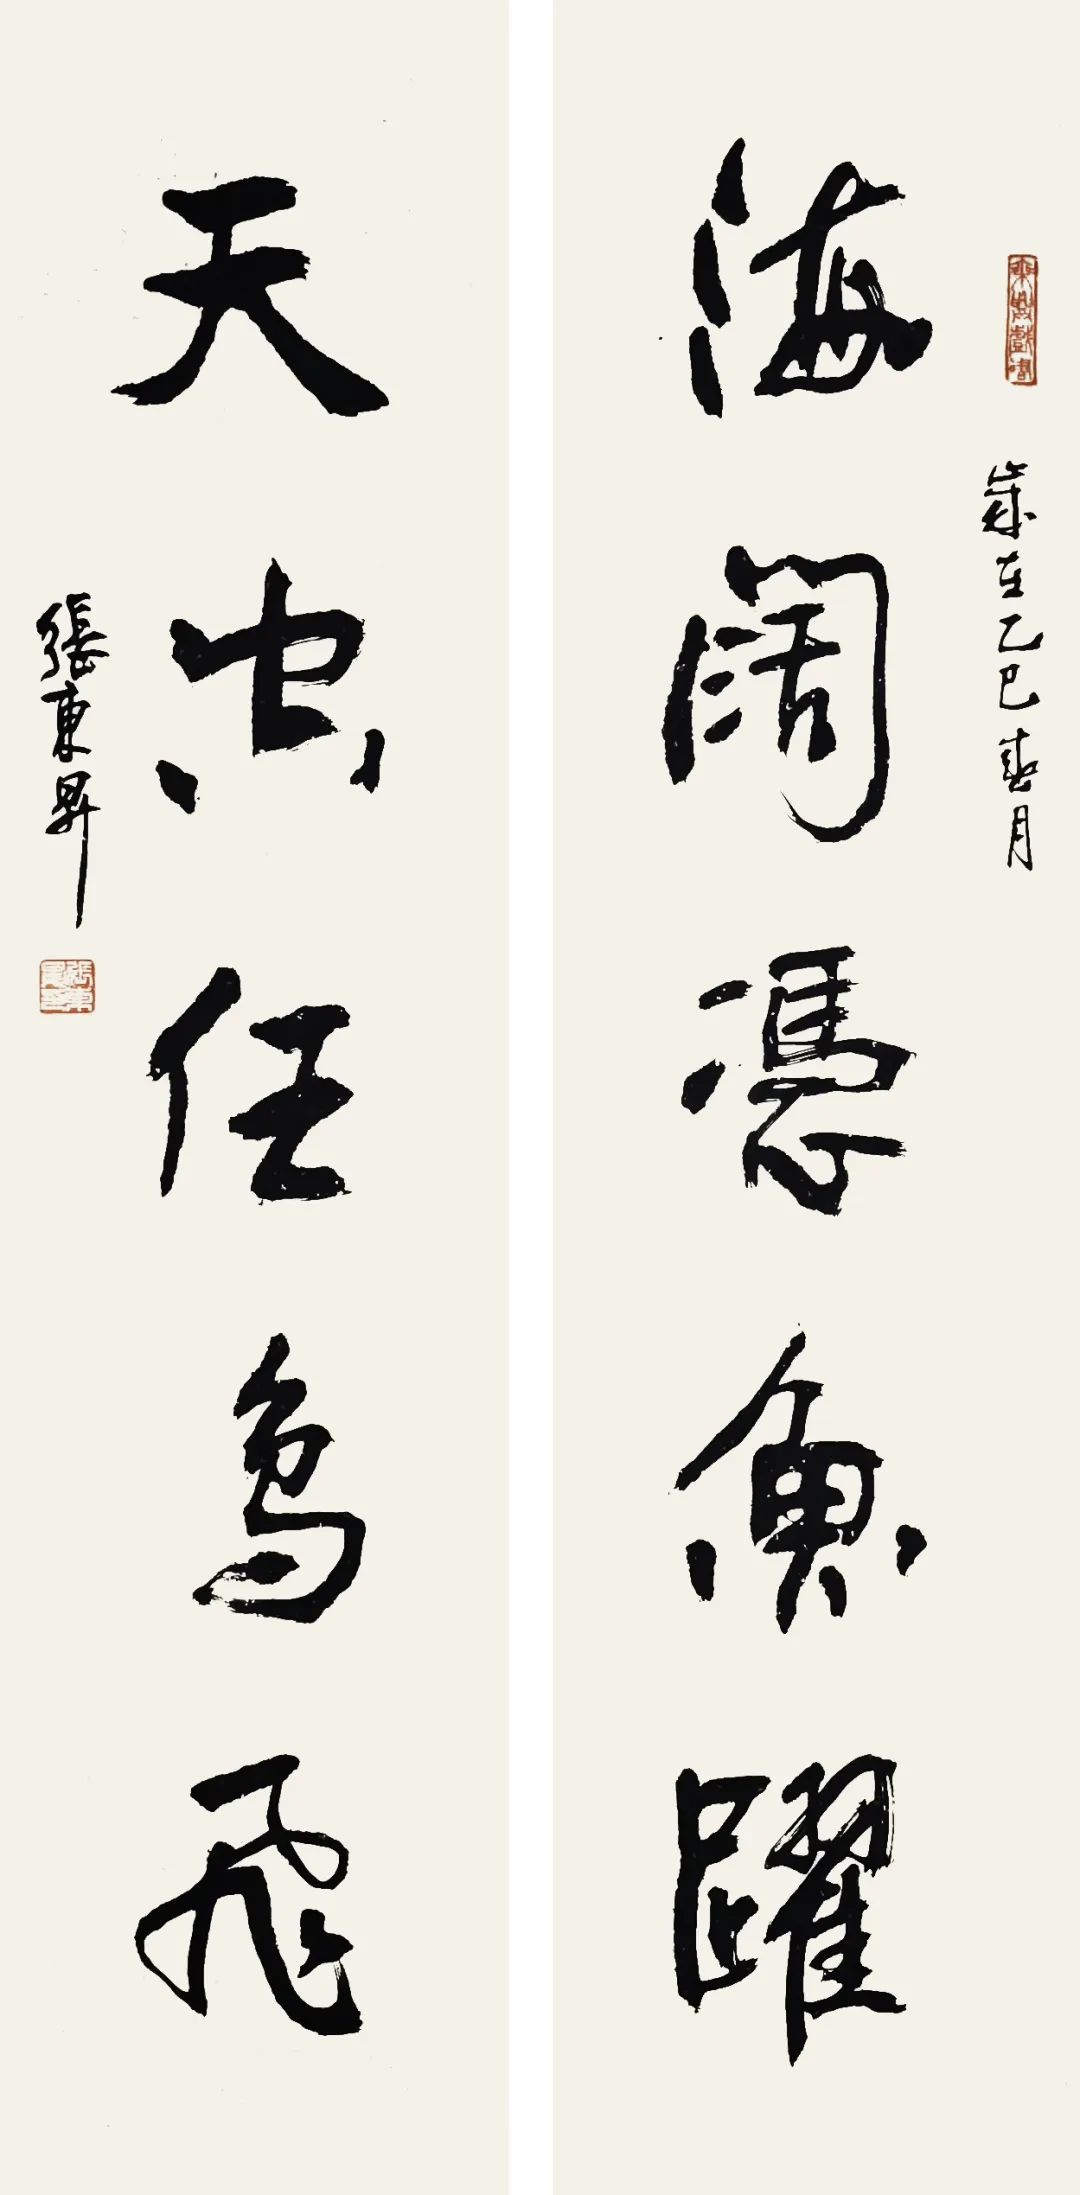 海闊憑魚躍
歲在乙巳春月
天空任鳥飛
張東昇